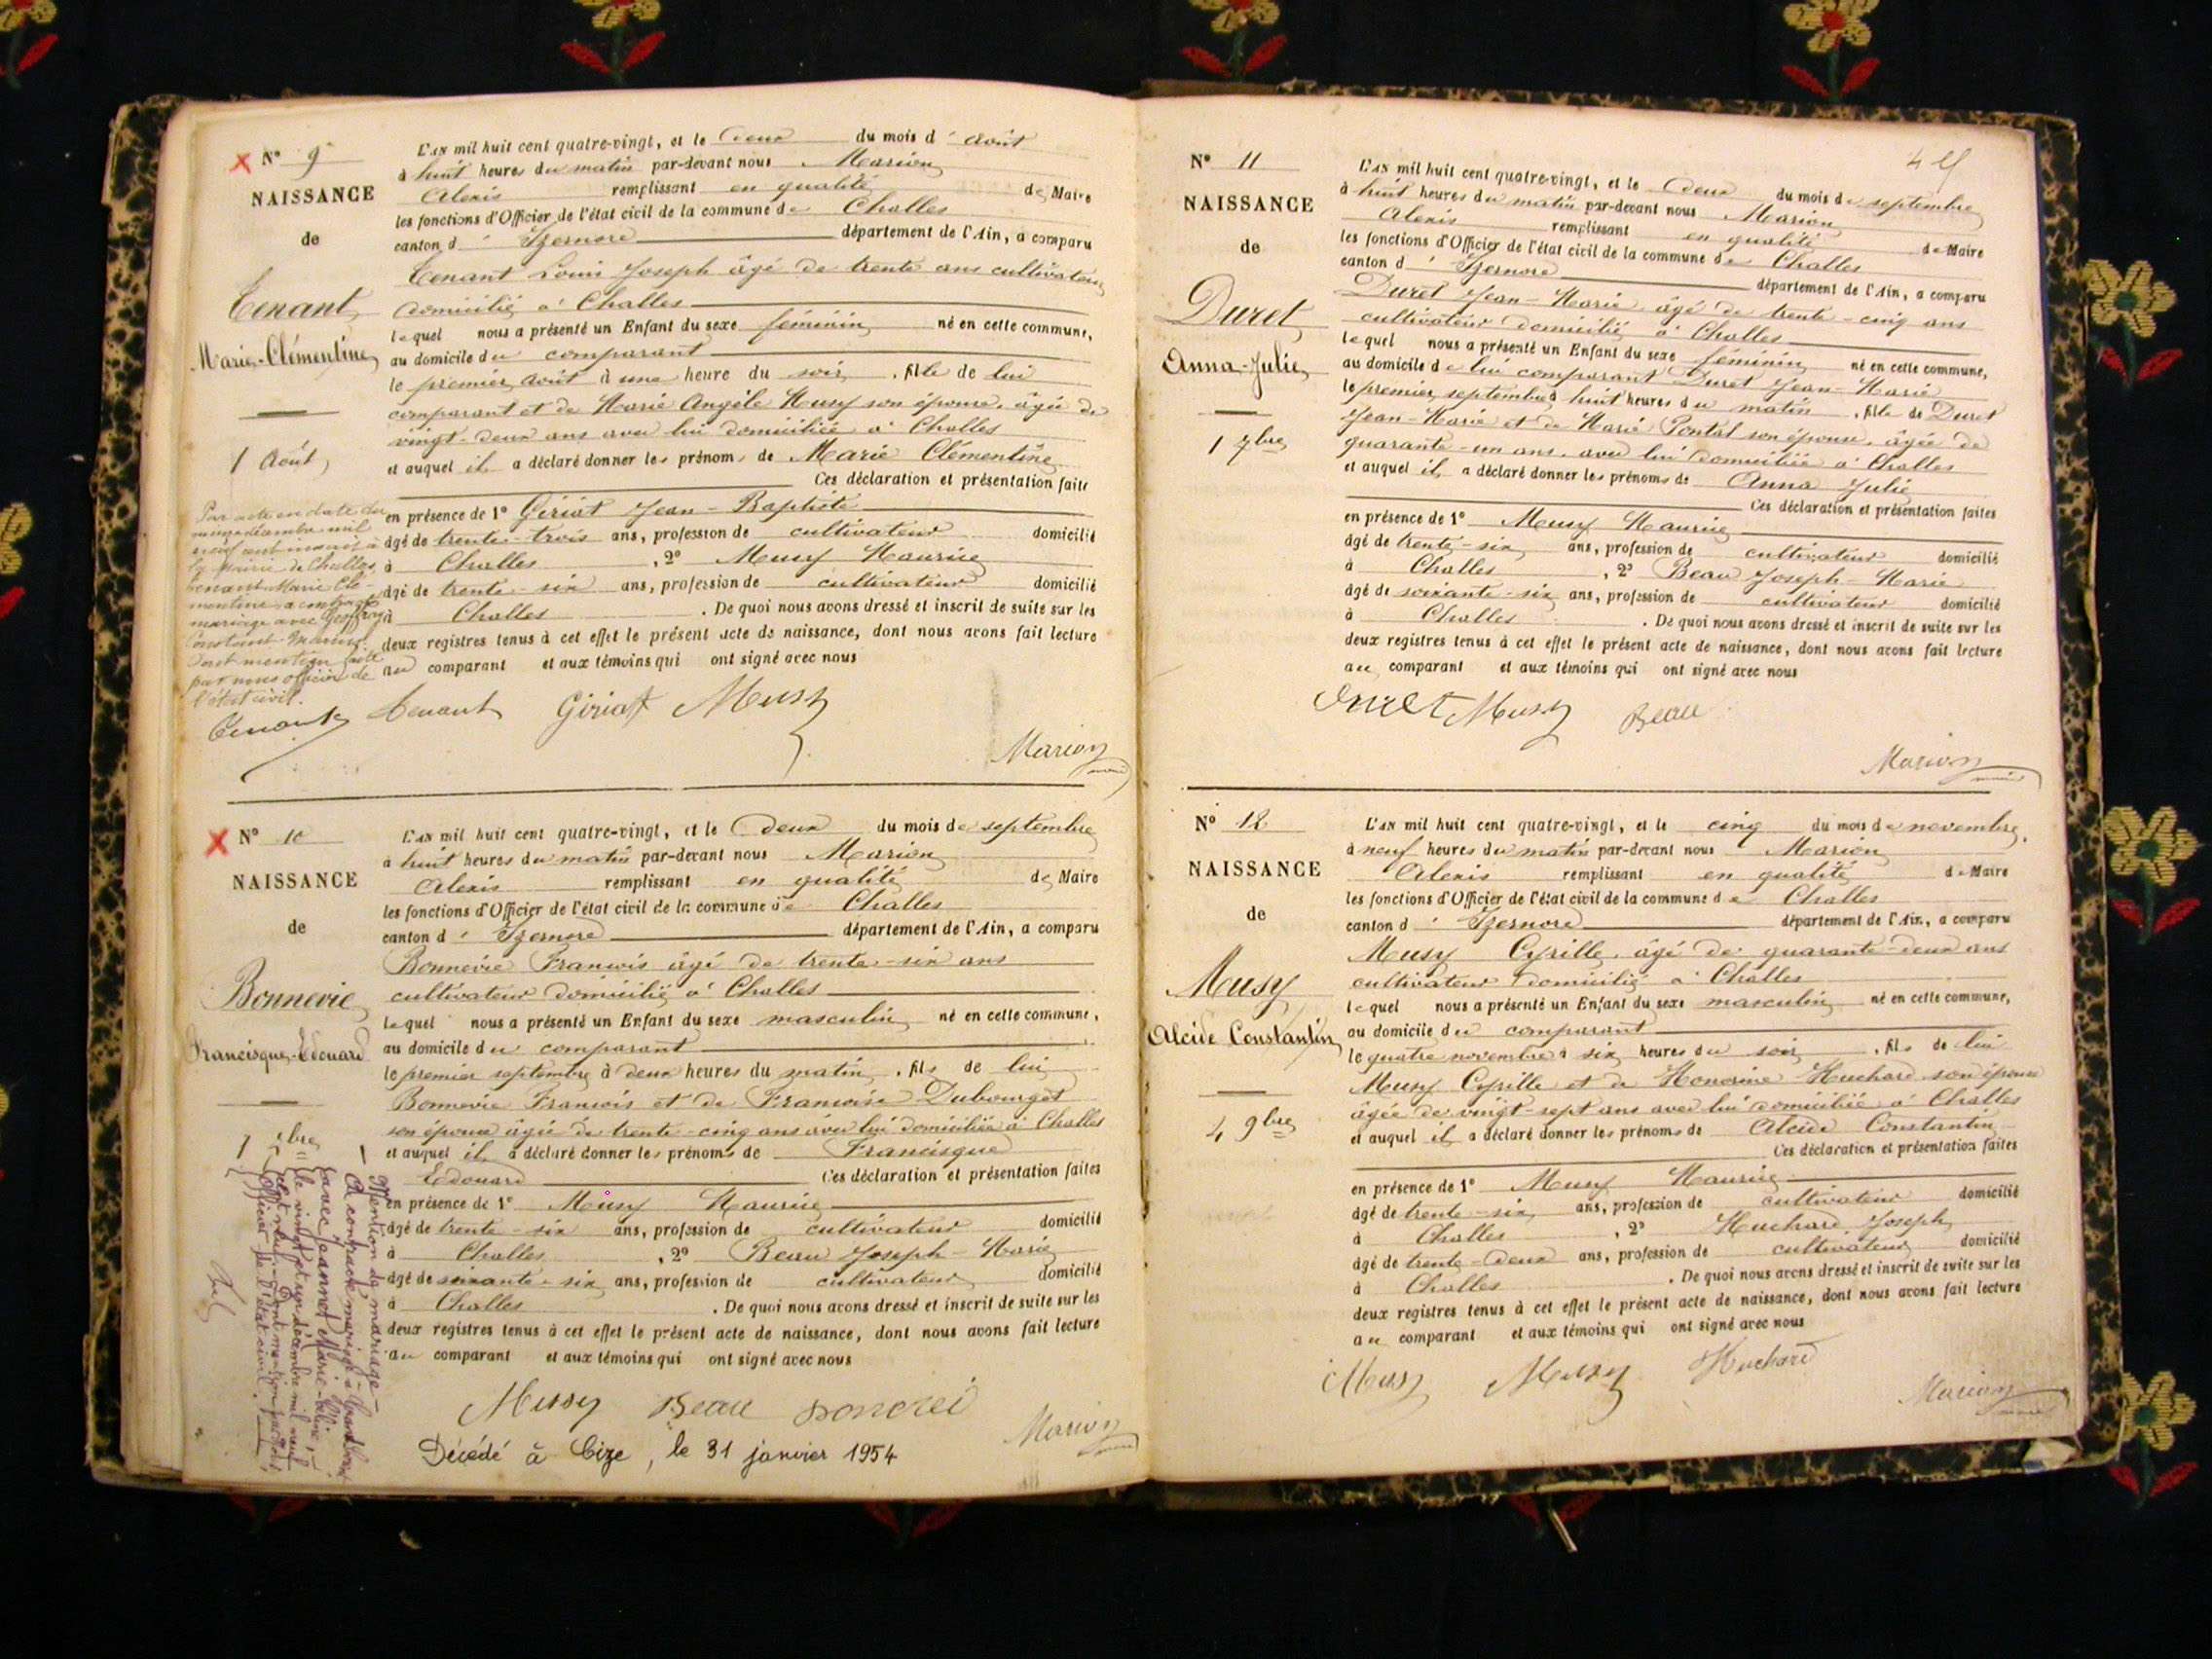 N° 9
NAISSANCE
de
Tenant
Marie-Clémentine
1 Août
Par acte en date du
mil
neuf cent
la mairie de Challes,
Tenant Marie Clé-
mentine a contracté
mariage avec
Constant
Dont mention faite
par nous officier de
l'état civil.
L'AN mil huit cent quatre-vingt, et le deux du mois d'août
à huit heures du matin par-devant nous Marion
Alexis remplissant en qualité de Maire
les fonctions d'Officier de l'état civil de la commune de Challes
canton d'Izernore département de l'Ain, a comparu
Tenant Louis Joseph âgé de trente ans cultivateur
domicilié à Challes
lequel nous a présenté un Enfant du sexe féminin né en cette commune,
au domicile du comparant
le premier août à une heure du soir, fille de lui
comparant et de Marie Angèle Musy son épouse, âgée de
vingt-deux ans avec lui domiciliée à Challes
et auquel il a déclaré donner les prénoms de Marie Clémentine
Ces déclaration et présentation faite
en présence de 1° Giriat Jean-Baptiste
âgé de trente-trois ans, profession de cultivateur domicilié
à Challes, 2° Musy Maurice
âgé de trente-six ans, profession de cultivateur domicilié
à Challes. De quoi nous avons dressé et inscrit de suite sur les
deux registres tenus à cet effet le présent acte de naissance, dont nous avons fait lecture
au comparant et aux témoins qui ont signé avec nous
Tenant Tenant Giriat Musy
Marion
N° 10
NAISSANCE
de
Bonnevie
Francisque-Edouard
1 7bre
Mention de mariage
A contracté mariage à
avec Jeannet Marie-
le vingt et un décembre mil neuf
cent neuf. Dont mention par nous
Officier de l'état civil.
L'AN mil huit cent quatre-vingt, et le deux du mois de septembre
à huit heures du matin par-devant nous Marion
Alexis remplissant en qualité de Maire
les fonctions d'Officier de l'état civil de la commune de Challes
canton d'Izernore département de l'Ain, a comparu
Bonnevie François âgé de trente-six ans
cultivateur domicilié à Challes
lequel nous a présenté un Enfant du sexe masculin né en cette commune,
au domicile du comparant
le premier septembre à deux heures du matin, fils de lui
Bonnevie François et de Françoise Dubourget
son épouse âgée de trente-cinq ans avec lui domiciliée à Challes
et auquel il a déclaré donner les prénoms de Francisque
Edouard Ces déclaration et présentation faites
en présence de 1° Musy Maurice
âgé de trente-six ans, profession de cultivateur domicilié
à Challes, 2° Beau Joseph Marie
âgé de soixante-six ans, profession de cultivateur domicilié
à Challes. De quoi nous avons dressé et inscrit de suite sur les
deux registres tenus à cet effet le présent acte de naissance, dont nous avons fait lecture
au comparant et aux témoins qui ont signé avec nous
Musy Beau
Marion
Décédé à Cize, le 31 janvier 1954
N° 11
NAISSANCE
de
Duret
Anna-Julie
1 7bre
L'AN mil huit cent quatre-vingt, et le deux du mois de septembre
à huit heures du matin par-devant nous Marion
Alexis remplissant en qualité de Maire
les fonctions d'Officier de l'état civil de la commune de Challes
canton d'Izernore département de l'Ain, a comparu
Duret Jean-Marie âgé de trente-cinq ans
cultivateur domicilié à Challes
lequel nous a présenté un Enfant du sexe féminin né en cette commune,
au domicile de lui comparant Duret Jean-Marie
le premier septembre à huit heures du matin, fille de Duret
Jean-Marie et de Marie Pontal son épouse, âgée de
quarante-un ans, avec lui domiciliée à Challes
et auquel il a déclaré donner les prénoms de Anna Julie
Ces déclaration et présentation faites
en présence de 1° Musy Maurice
âgé de trente-six ans, profession de cultivateur domicilié
à Challes, 2° Beau Joseph-Marie
âgé de soixante-six ans, profession de cultivateur domicilié
à Challes. De quoi nous avons dressé et inscrit de suite sur les
deux registres tenus à cet effet le présent acte de naissance, dont nous avons fait lecture
au comparant et aux témoins qui ont signé avec nous
Duret Musy Beau
Marion
N° 12
NAISSANCE
de
Musy
Alcide Constantin
4 9bre
L'AN mil huit cent quatre-vingt, et le cinq du mois de novembre
à neuf heures du matin par-devant nous Marion
Alexis remplissant en qualité de Maire
les fonctions d'Officier de l'état civil de la commune de Challes
canton d'Izernore département de l'Ain, a comparu
Musy Cyrille, âgé de quarante-deux ans
cultivateur domicilié à Challes
lequel nous a présenté un Enfant du sexe masculin né en cette commune,
au domicile du comparant
le quatre novembre à six heures du soir, fils de lui
Musy Cyrille et de Honorine Huchard son épouse
âgée de vingt-sept ans avec lui domiciliée à Challes
et auquel il a déclaré donner les prénoms de Alcide Constantin
Ces déclaration et présentation faites
en présence de 1° Musy Maurice
âgé de trente-six ans, profession de cultivateur domicilié
à Challes, 2° Huchard Joseph
âgé de trente-deux ans, profession de cultivateur domicilié
à Challes. De quoi nous avons dressé et inscrit de suite sur les
deux registres tenus à cet effet le présent acte de naissance, dont nous avons fait lecture
au comparant et aux témoins qui ont signé avec nous
Musy Musy Huchard
Marion